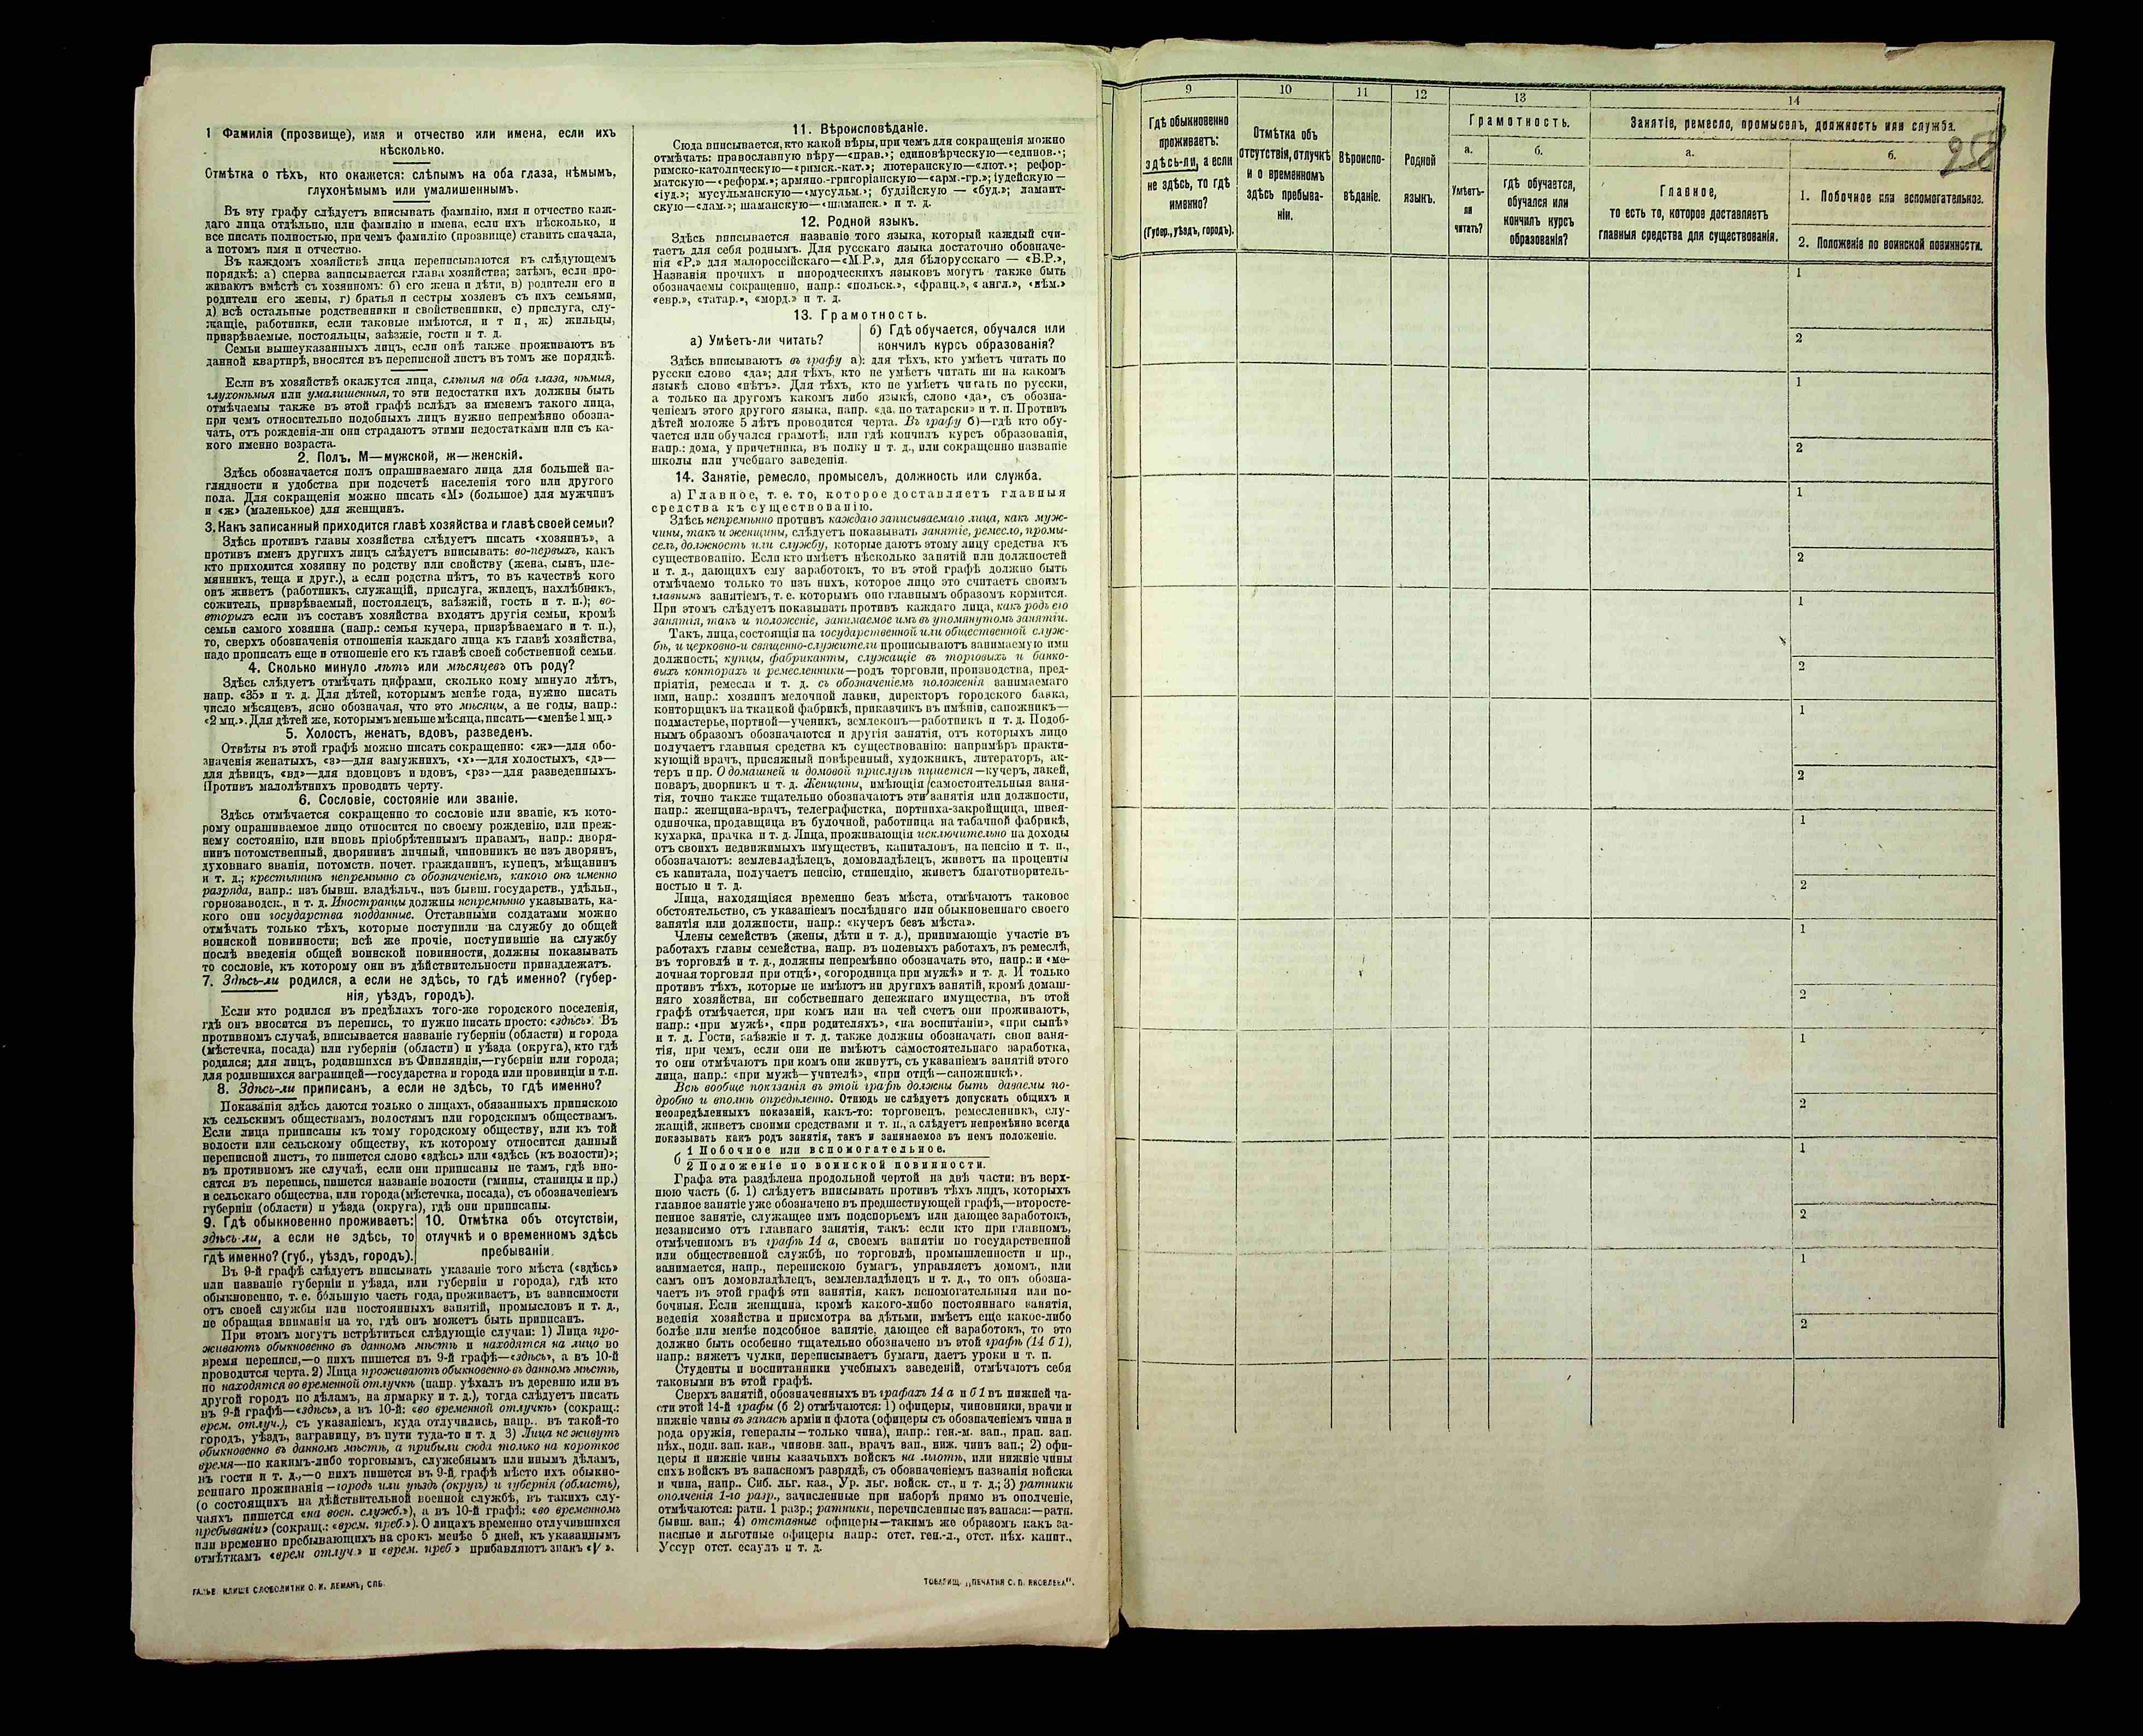 1 Фамилія (прозвище), имя и отчество или имена, если ихъ
нѣсколько.
Отмѣтка о тѣхъ, кто окажется: слѣпымъ на оба глаза, нѣмымъ,
глухонѣмымъ или умалишеннымъ.
Въ эту графу слѣдуетъ вписывать фамилію, имя и отчество каж-
даго лица отдѣльно, или фамилію и имена, если ихъ нѣсколько, и
все писать полностью, при чемъ фамилію (прозвище) ставить сначала,
а потомъ имя и отчество.
Въ каждомъ хозяйствѣ лица переписываются въ слѣдующемъ
порядкѣ: а) сперва записывается глава хозяйства; затѣмъ, если про-
живаютъ вмѣстѣ съ хозяиномъ: б) его жена и дѣти, в) родители его и
родители его жены, г) братья и сестры хозяевъ съ ихъ семьями,
д) всѣ остальные родственники и свойственники, е) прислуга, слу-
жащіе, работники, если таковые имѣются, и т п, ж) жильцы,
призрѣваемые, постояльцы, заѣзжіе, гости и т. д.
Семьи вышеуказанныхъ лицъ, если онѣ также проживаютъ въ
данной квартирѣ, вносятся въ переписной листъ въ томъ же порядкѣ.
Если въ хозяйствѣ окажутся лица, слѣпыя на оба глаза, нѣмыя,
глухонѣмыя или умалишенныя, то эти недостатки ихъ должны быть
отмѣчаемы также въ этой графѣ вслѣдъ за именемъ такого лица,
при чемъ относительно подобныхъ лицъ нужно непремѣнно обозна-
чать, отъ рожденія-ли они страдаютъ этими недостатками или съ ка-
кого именно возраста.
2. Полъ. М—мужской, ж—женскій.
Здѣсь обозначается полъ опрашиваемаго лица для большей на-
глядности и удобства при подсчетѣ населенія того или другого
пола. Для сокращенія можно писать «М» (большое) для мужчинъ
и «ж» (маленькое) для женщинъ.
3. Какъ записанный приходится главѣ хозяйства и главѣ своей семьи?
Здѣсь противъ главы хозяйства слѣдуетъ писать «хозяинъ», а
противъ именъ другихъ лицъ слѣдуетъ вписывать: во-первыхъ, какъ
кто приходится хозяину по родству или свойству (жена, сынъ, пле-
мянникъ, теща и друг.), а если родства нѣтъ, то въ качествѣ кого
онъ живетъ (работникъ, служащій, прислуга, жилецъ, нахлѣбникъ,
сожитель, призрѣваемый, постоялецъ, заѣзжій, гость и т. п.); во-
вторыхъ если въ составъ хозяйства входятъ другія семьи, кромѣ
семьи самого хозяина (напр.: семья кучера, призрѣваемаго и т. п.),
то, сверхъ обозначенія отношенія каждаго лица къ главѣ хозяйства,
надо прописать еще и отношеніе его къ главѣ своей собственной семьи.
4. Сколько минуло лѣтъ или мѣсяцевъ отъ роду?
Здѣсь слѣдуетъ отмѣчать цифрами, сколько кому минуло лѣтъ,
напр. «35» и т. д. Для дѣтей, которымъ менѣе года, нужно писать
число мѣсяцевъ, ясно обозначая, что это мѣсяцы, а не годы, напр.:
«2 мц.». Для дѣтей же, которымъ меньше мѣсяца, писать—«менѣе 1 мц.»
5. Холостъ, женатъ, вдовъ, разведенъ.
Отвѣты въ этой графѣ можно писать сокращенно: «ж»—для обо-
значенія женатыхъ, «з»—для замужнихъ, «х»—для холостыхъ, «д»—
для дѣвицъ, «вд»—для вдовцовъ и вдовъ, «рз»—для разведенныхъ.
Противъ малолѣтнихъ проводить черту.
6. Сословіе, состояніе или званіе.
Здѣсь отмѣчается сокращенно то сословіе или званіе, къ кото-
рому опрашиваемое лицо относится по своему рожденію, или преж-
нему состоянію, или вновь пріобрѣтеннымъ правамъ, напр.: дворя-
нинъ потомственный, дворянинъ личный, чиновникъ не изъ дворянъ,
духовнаго званія, потомств. почет. гражданинъ, купецъ, мѣщанинъ
и т. д.; крестьянинъ непремѣнно съ обозначеніемъ, какого онъ именно
разряда, напр.: изъ бывш. владѣльч., изъ бывш. государств., удѣльн.,
горнозаводск., и т. д. Иностранцы должны непремѣнно указывать, ка-
кого они государства подданные. Отставными солдатами можно
отмѣчать только тѣхъ, которые поступили на службу до общей
воинской повинности; всѣ же прочіе, поступившіе на службу
послѣ введенія общей воинской повинности, должны показывать
то сословіе, къ которому они въ дѣйствительности принадлежатъ.
7. Здѣсь-ли родился, а если не здѣсь, то гдѣ именно? (губер-
нія, уѣздъ, городъ).
Если кто родился въ предѣлахъ того-же городского поселенія,
гдѣ онъ вносятся въ перепись, то нужно писать просто: «здѣсь». Въ
противномъ случаѣ, вписывается названіе губерніи (области) и города
(мѣстечка, посада) или губерніи (области) и уѣзда (округа), кто гдѣ
родился; для лицъ, родившихся въ Финляндіи,—губерніи или города;
для родившихся заграницей—государства и города или провинціи и т.п.
8. Здѣсь-ли приписанъ, а если не здѣсь, то гдѣ именно?
Показанія здѣсь даются только о лицахъ, обязанныхъ припискою
къ сельскимъ обществамъ, волостямъ или городскимъ обществамъ.
Если лица приписаны къ тому городскому обществу, или къ той
волости или сельскому обществу, къ которому относится данный
переписной листъ, то пишется слово «здѣсь» или «здѣсь (къ волости)»;
въ противномъ же случаѣ, если они приписаны не тамъ, гдѣ вно-
сятся въ перепись, пишется названіе волости (гмины, станицы и пр.)
и сельскаго общества, или города (мѣстечка, посада), съ обозначеніемъ
губерніи (области) и уѣзда (округа), гдѣ они приписаны.
9. Гдѣ обыкновенно проживаетъ:
здѣсь-ли, а если не здѣсь, то
гдѣ именно? (губ., уѣздъ, городъ).
10. Отмѣтка объ отсутствіи,
отлучкѣ и о временномъ здѣсь
пребываніи.
Въ 9-й графѣ слѣдуетъ вписывать указаніе того мѣста («здѣсь»
или названіе губерніи и уѣзда, или губерніи и города), гдѣ кто
обыкновенно, т. е. бо́льшую часть года, проживаетъ, въ зависимости
отъ своей службы или постоянныхъ занятій, промысловъ и т. д.,
не обращая вниманія на то, гдѣ онъ можетъ быть приписанъ.
При этомъ могутъ встрѣтиться слѣдующіе случаи: 1) Лица про-
живаютъ обыкновенно въ данномъ мѣстѣ и находятся на лицо во
время переписи,—о нихъ пишется въ 9-й графѣ—«здѣсь», а въ 10-й
проводится черта. 2) Лица проживаютъ обыкновенно въ данномъ мѣстѣ,
но находятся во временной отлучкѣ (напр. уѣхалъ въ деревню или въ
другой городъ по дѣламъ, на ярмарку и т. д.), тогда слѣдуетъ писать
въ 9-й графѣ—«здѣсь», а въ 10-й: «во временной отлучкѣ» (сокращ.:
врем. отлуч.), съ указаніемъ, куда отлучились, напр.. въ такой-то
городъ, уѣздъ, заграницу, въ пути туда-то и т. д 3) Лица не живутъ
обыкновенно въ данномъ мѣстѣ, а прибыли сюда только на короткое
время—по какимъ-либо торговымъ, служебнымъ или инымъ дѣламъ,
въ гости и т. д.,—о нихъ пишется въ 9-й графѣ мѣсто ихъ обыкно-
веннаго проживанія—городъ или уѣздъ (округъ) и губернія (область),
(о состоящихъ на дѣйствительной военной службѣ, въ такихъ слу-
чаяхъ пишется «на воен. служб.»), а въ 10-й графѣ: «во временномъ
пребываніи» (сокращ.: «врем. преб.»). О лицахъ временно отлучившихся
или временно пребывающихъ на срокъ менѣе 5 дней, къ указаннымъ
отмѣткамъ «врем отлуч.» и «врем. преб» прибавляютъ знакъ «V».
ГАЛЬВ. КЛИШЕ СЛОВОЛИТНИ О. И. ЛЕМАНЪ, СПБ.
11. Вѣроисповѣданіе.
Сюда вписывается, кто какой вѣры, при чемъ для сокращенія можно
отмѣчать: православную вѣру—«прав.»; единовѣрческую—«единов.»;
римско-католическую—«римск.-кат.»; лютеранскую—«лют.»; рефор-
матскую—«реформ.»; армяно.-григоріанскую—«арм.-гр.»; іудейскую—
«іуд.»; мусульманскую—«мусульм.»; будзійскую — «буд.»; ламаит-
скую—«лам.»; шаманскую—«шаманск.» и т. д.
12. Родной языкъ.
Здѣсь вписывается названіе того языка, который каждый счи-
таетъ для себя роднымъ. Для русскаго языка достаточно обозначе-
нія «Р.» для малороссійскаго—«М.Р.», для бѣлорусскаго — «Б.Р.»,
Названія прочихъ и инородческихъ языковъ могутъ также быть
обозначаемы сокращенно, напр.: «польск.», «франц.», « англ.», «нѣм.»
«евр.», «татар.», «морд.» и т. д.
13. Грамотность.
а) Умѣетъ-ли читать?
б) Гдѣ обучается, обучался или
кончилъ курсъ образованія?
Здѣсь вписываютъ въ графу а): для тѣхъ, кто умѣетъ читать по
русски слово «да»; для тѣхъ, кто не умѣетъ читать ни на какомъ
языкѣ слово «нѣтъ». Для тѣхъ, кто не умѣетъ читать по русски,
а только на другомъ какомъ либо языкѣ, слово «да», съ обозна-
ченіемъ этого другого языка, напр. «да, по татарски» и т. п. Противъ
дѣтей моложе 5 лѣтъ проводится черта. Въ графу б)—гдѣ кто обу-
чается или обучался грамотѣ, или гдѣ кончилъ курсъ образованія,
напр.: дома, у причетника, въ полку и т. д., или сокращенно названіе
школы или учебнаго заведенія.
14. Занятіе, ремесло, промыселъ, должность или служба.
а) Главное, т. е. то, которое доставляетъ главныя
средства къ существованію.
Здѣсь непремѣнно противъ каждаго записываемаго лица, какъ муж-
чины, такъ и женщины, слѣдуетъ показывать занятіе, ремесло, промы-
селъ, должность или службу, которые даютъ этому лицу средства къ
существованію. Если кто имѣетъ нѣсколько занятій или должностей
и т. д., дающихъ ему заработокъ, то въ этой графѣ должно быть
отмѣчаемо только то изъ нихъ, которое лицо это считаетъ своимъ
главнымъ занятіемъ, т. е. которымъ оно главнымъ образомъ кормится.
При этомъ слѣдуетъ показывать противъ каждаго лица, какъ родъ его
занятія, такъ и положеніе, занимаемое имъ въ упомянутомъ занятіи.
Такъ, лица, состоящія на государственной или общественной служ-
бѣ, и церковно-и священно-служители прописываютъ занимаемую ими
должность; купцы, фабриканты, служащіе въ торговыхъ и банко-
выхъ конторахъ и ремесленники—родъ торговли, производства, пред-
пріятія, ремесла и т. д. съ обозначеніемъ положенія занимаемаго
ими, напр.: хозяинъ мелочной лавки, директоръ городского банка,
конторщикъ на ткацкой фабрикѣ, приказчикъ въ имѣніи, сапожникъ—
подмастерье, портной—ученикъ, землекопъ—работникъ и т. д. Подоб-
нымъ образомъ обозначаются и другія занятія, отъ которыхъ лицо
получаетъ главныя средства къ существованію: напримѣръ практи-
кующій врачъ, присяжный повѣренный, художникъ, литераторъ, ак-
теръ и пр. О домашней и домовой прислугѣ пишется—кучеръ, лакей,
поваръ, дворникъ и т. д. Женщины, имѣющія самостоятельныя заня-
тія, точно также тщательно обозначаютъ эти занятія или должности,
напр.: женщина-врачъ, телеграфистка, портниха-закройщица, швея-
одиночка, продавщица въ булочной, работница на табачной фабрикѣ,
кухарка, прачка и т. д. Лица, проживающія исключительно на доходы
отъ своихъ недвижимыхъ имуществъ, капиталовъ, на пенсію и т. п.,
обозначаютъ: землевладѣлецъ, домовладѣлецъ, живетъ на проценты
съ капитала, получаетъ пенсію, стипендію, живетъ благотворитель-
ностью и т. д.
Лица, находящіяся временно безъ мѣста, отмѣчаютъ таковое
обстоятельство, съ указаніемъ послѣдняго или обыкновеннаго своего
занятія или должности, напр.: «кучеръ безъ мѣста».
Члены семействъ (жены, дѣти и т. д.), принимающіе участіе въ
работахъ главы семейства, напр. въ полевыхъ работахъ, въ ремеслѣ,
въ торговлѣ и т. д., должны непремѣнно обозначать это, напр.: и «ме-
лочная торговля при отцѣ», «огородница при мужѣ» и т. д. И только
противъ тѣхъ, которые не имѣютъ ни другихъ занятій, кромѣ домаш-
няго хозяйства, ни собственнаго денежнаго имущества, въ этой
графѣ отмѣчается, при комъ или на чей счетъ они проживаютъ,
напр.: «при мужѣ», «при родителяхъ», «на воспитаніи», «при сынѣ»
и т. д. Гости, заѣзжіе и т. д. также должны обозначать свои заня-
тія, при чемъ, если они не имѣютъ самостоятельнаго заработка,
то они отмѣчаютъ при комъ они живутъ, съ указаніемъ занятій этого
лица, напр.: «при мужѣ—учителѣ», «при отцѣ—сапожникѣ».
Всѣ вообще показанія въ этой графѣ должны быть даваемы по-
дробно и вполнѣ опредѣленно. Отнюдь не слѣдуетъ допускать общихъ и
неопредѣленныхъ показаній, какъ-то: торговецъ, ремесленникъ, слу-
жащій, живетъ своими средствами и т. п., а слѣдуетъ непремѣнно всегда
показывать какъ родъ занятія, такъ и занимаемое въ немъ положеніе.
б
1 Побочное или вспомогательное.
2 Положеніе по воинской повинности.
Графа эта раздѣлена продольной чертой на двѣ части: въ верх-
нюю часть (б. 1) слѣдуетъ вписывать противъ тѣхъ лицъ, которыхъ
главное занятіе уже обозначено въ предшествующей графѣ,—второсте-
пенное занятіе, служащее имъ подспорьемъ или дающее заработокъ,
независимо отъ главнаго занятія, такъ: если кто при главномъ,
отмѣченномъ въ графѣ 14 а, своемъ занятіи по государственной
или общественной службѣ, по торговлѣ, промышленности и пр.,
занимается, напр., перепискою бумагъ, управляетъ домомъ, или
самъ онъ домовладѣлецъ, землевладѣлецъ и т. д., то онъ обозна-
чаетъ въ этой графѣ эти занятія, какъ вспомогательныя или по-
бочныя. Если женщина, кромѣ какого-либо постояннаго занятія,
веденія хозяйства и присмотра за дѣтьми, имѣетъ еще какое-либо
болѣе или менѣе подсобное занятіе, дающее ей заработокъ, то это
должно быть особенно тщательно обозначено въ этой графѣ (14 б 1),
напр.: вяжетъ чулки, переписываетъ бумаги, даетъ уроки и т. п.
Студенты и воспитанники учебныхъ заведеній, отмѣчаютъ себя
таковыми въ этой графѣ.
Сверхъ занятій, обозначенныхъ въ графахъ 14 а и б 1 въ нижней ча-
сти этой 14-й графы (б 2) отмѣчаются: 1) офицеры, чиновники, врачи и
нижніе чины въ запасѣ арміи и флота (офицеры съ обозначеніемъ чина и
рода оружія, генералы—только чина), напр.: ген.-м. зап., прап. зап.
пѣх., подп. зап. кав., чиновн. зап., врачъ зап., ниж. чинъ зап.; 2) офи-
церы и нижніе чины казачьихъ войскъ на льготѣ, или нижніе чины
сихъ войскъ въ запасномъ разрядѣ, съ обозначеніемъ названія войска
и чина, напр.. Сиб. льг. каз., Ур. льг. войск. ст., и т. д.; 3) ратники
ополченія 1-го разр., зачисленные при наборѣ прямо въ ополченіе,
отмѣчаются: ратн. 1 разр.; ратники, перечисленные изъ запаса:—ратн.
бывш. зап.; 4) отставные офицеры—такимъ же образомъ какъ за-
пасные и льготные офицеры напр.: отст. ген.-л., отст. пѣх. капит.,
Уссур отст. есаулъ и т. д.
ТОВАРИЩ. „ПЕЧАТНЯ С. П. ЯКОВЛЕВА".
9
10
11
12
13
14
Гдѣ обыкновенно
проживаетъ:
здѣсь-ли, а если
не здѣсь, то гдѣ
именно?
(Губер., уѣздъ, городъ).
Отмѣтка объ
отсутствіи, отлучкѣ
и о временномъ
здѣсь пребыва-
ніи.
Вѣроиспо-
вѣданіе.
Родной
языкъ.
Грамотность.
а.
Умѣетъ-
ли
читать?
б.
гдѣ обучается,
обучался или
кончилъ курсъ
образованія?
Занятіе, ремесло, промыселъ, должность или служба.
258
а.
Главное,
то есть то, которое доставляетъ
главныя средства для существованія.
б.
1. Побочное или вспомогательное.
2. Положеніе по воинской повинности.
1
2
1
2
1
2
1
2
1
2
1
2
1
2
1
2
1
2
1
2